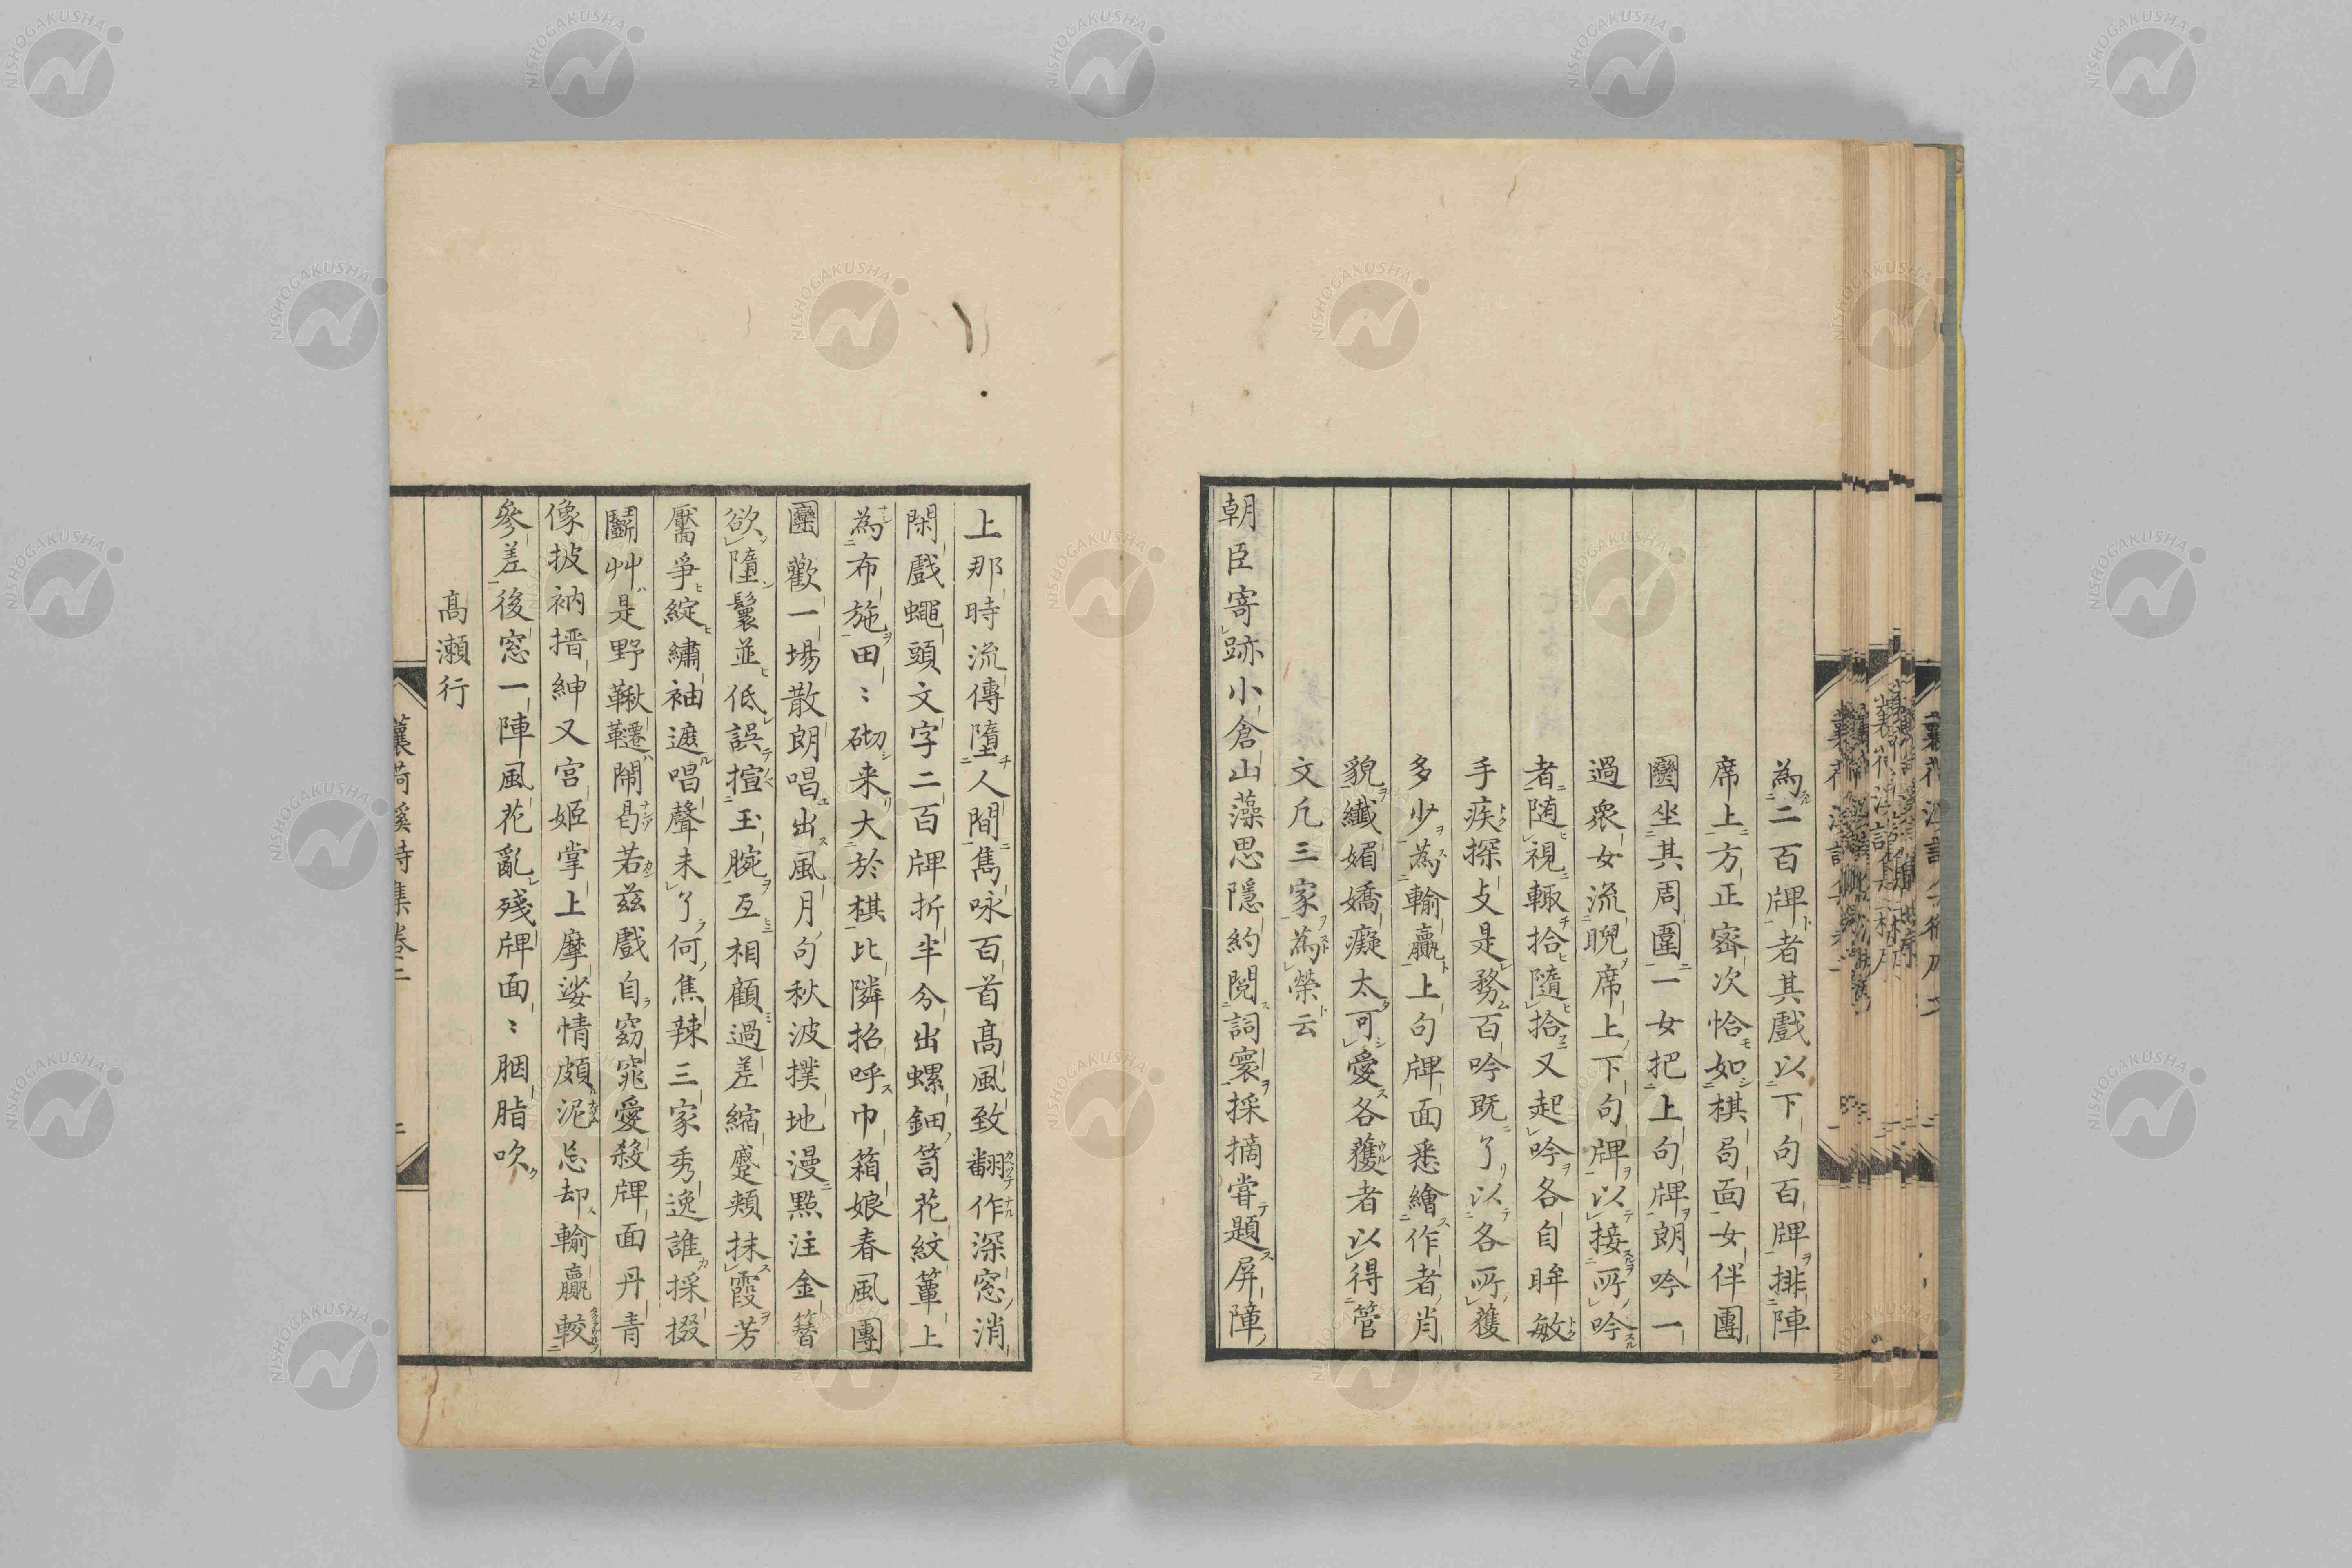 為二百牌者其戲以下句百牌排陣
席上方正密次恰如棋局面女伴團
圞坐其周圍一女把上句牌朗吟一
過衆女流睨席上下句牌以接所吟
者随視輙拾隨拾又起吟各自眸敏
手疾探攴是務百吟既了以各所獲
多少為輸贏上句牌面悉繪作者肖
貌纖媚嬌癡太可愛各獲者以得管
文凡三家為榮云
朝臣寄跡小倉山藻思隱約閲詞寰採摘嘗題屏障
上那時流傳墮人間雋咏百首髙風致翻作深窓消
閑戲蠅頭文字二百牌折半分出螺鈿笥花紋簟上
為布施田〻砌来大於棋比隣招呼巾箱娘春風團
圞歡一場散朗唱出風月句秋波撲地漫點注金簪
欲墮鬟並低誤揎玉腕互相顧過差縮蹙頬抹霞芳
靨爭綻繡袖遮唱聲未了何焦辣三家秀逸誰採掇
鬭艸是野鞦韆鬧曷若茲戲自窈窕愛殺牌面丹青
像披衲搢紳又宮姬掌上摩挲情頗泥忘却輸贏較
參差後窓一陣風花亂殘牌面〻胭脂吹
髙瀬行
蘘荷溪詩集卷二
二
NISHOGAKUSHA